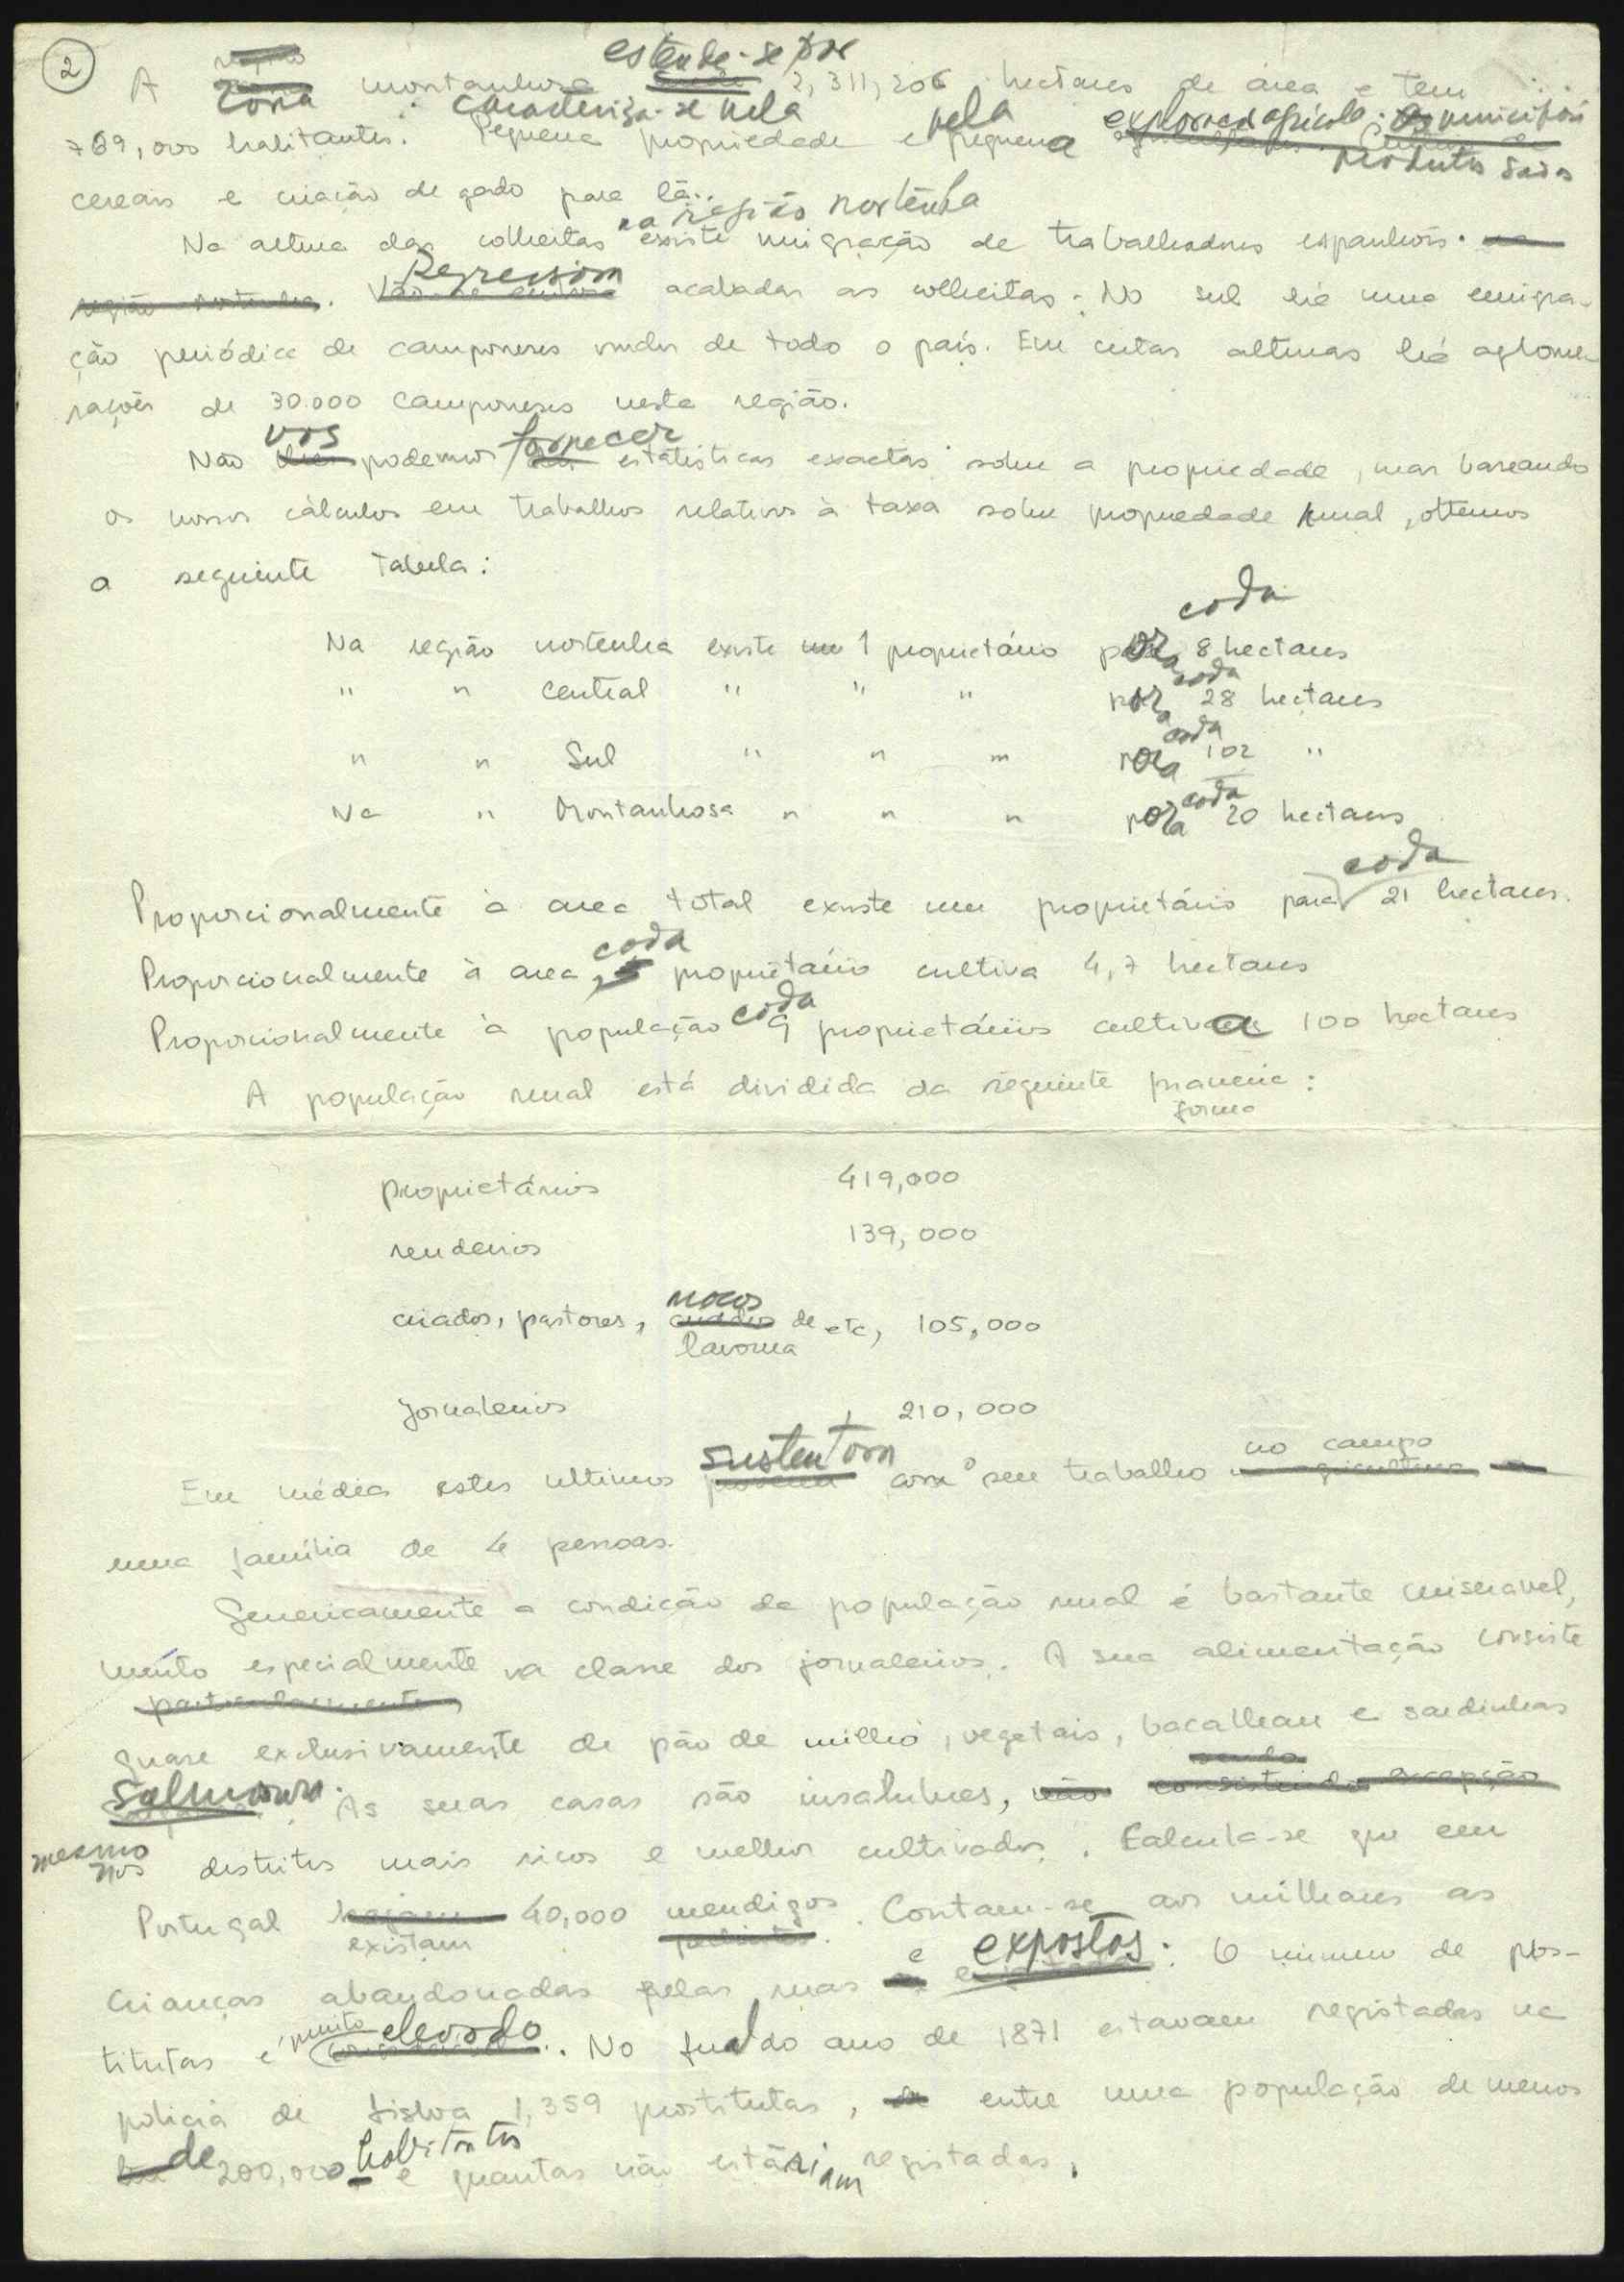 2
A montanhosa estende-se por 2,311,206 hectares de área e tem
769,000 habitantes. caracteriza-se pela Pequena propriedade e pela pequena exploração agrícola. os principais produtos são
cereais e criação de gado para lã.
Na altura das colheitas na região nortenha existe migração de trabalhadores espanhóis.
região nortenha. Regressam acabadas as colheitas. No sul há uma emigra-
ção periódica de camponeses vindos de todo o país. Em certas alturas há aglome-
rações de 30.000 camponeses nesta região.
Não vos podemos fornecer estatísticas exactas sobre a propriedade, mas baseando
os nossos cálculos em trabalhos relativos à taxa sobre propriedade rural, obtemos
a seguinte tabela:
Na região nortenha existe um 1 proprietário por cada 8 hectares
" " Central " " " por cada 28 hectares
" " Sul " " " por cada 102 "
Na " Montanhosa " " " por cada 20 hectares
Proporcionalmente à area total existe um proprietário para cada 21 hectares.
Proporcionalmente à area, cada proprietário cultiva 4,7 hectares
Proporcionalmente à população cada 9 proprietários cultiva 100 hectares
A população rural está dividida da seguinte maneira:
forma
proprietários 419,000
rendeiros 139,000
criados, pastores, moços criados de lavoura etc, 105,000
jornaleiros 210,000
Em média estes ultimos sustentam com o seu trabalho no campo na agricultura
uma família de 4 pessoas.
Genericamente a condição da população rural é bastante miseravel,
muito especialmente na classe dos jornaleiros. A sua alimentação consiste
particularmente
quase exclusivamente de pão de milho, vegetais, bacalhau e sardinhas
salmoura. As suas casas são insalubres, não sendo consistindo excepção
mesmo nos distritos mais ricos e melhor cultivados. Calcula-se que em
Portugal hajam existam 40,000 mendigos pedintes. Contam-se aos milhares as
crianças abandonadas pelas ruas e expostos. O número de pros-
titutas é muito elevado. No final do ano de 1871 estavam registadas na
policia de Lisboa 1,359 prostitutas, entre uma população de menos
de 200,000 habitantes e quantas não estariam registadas.